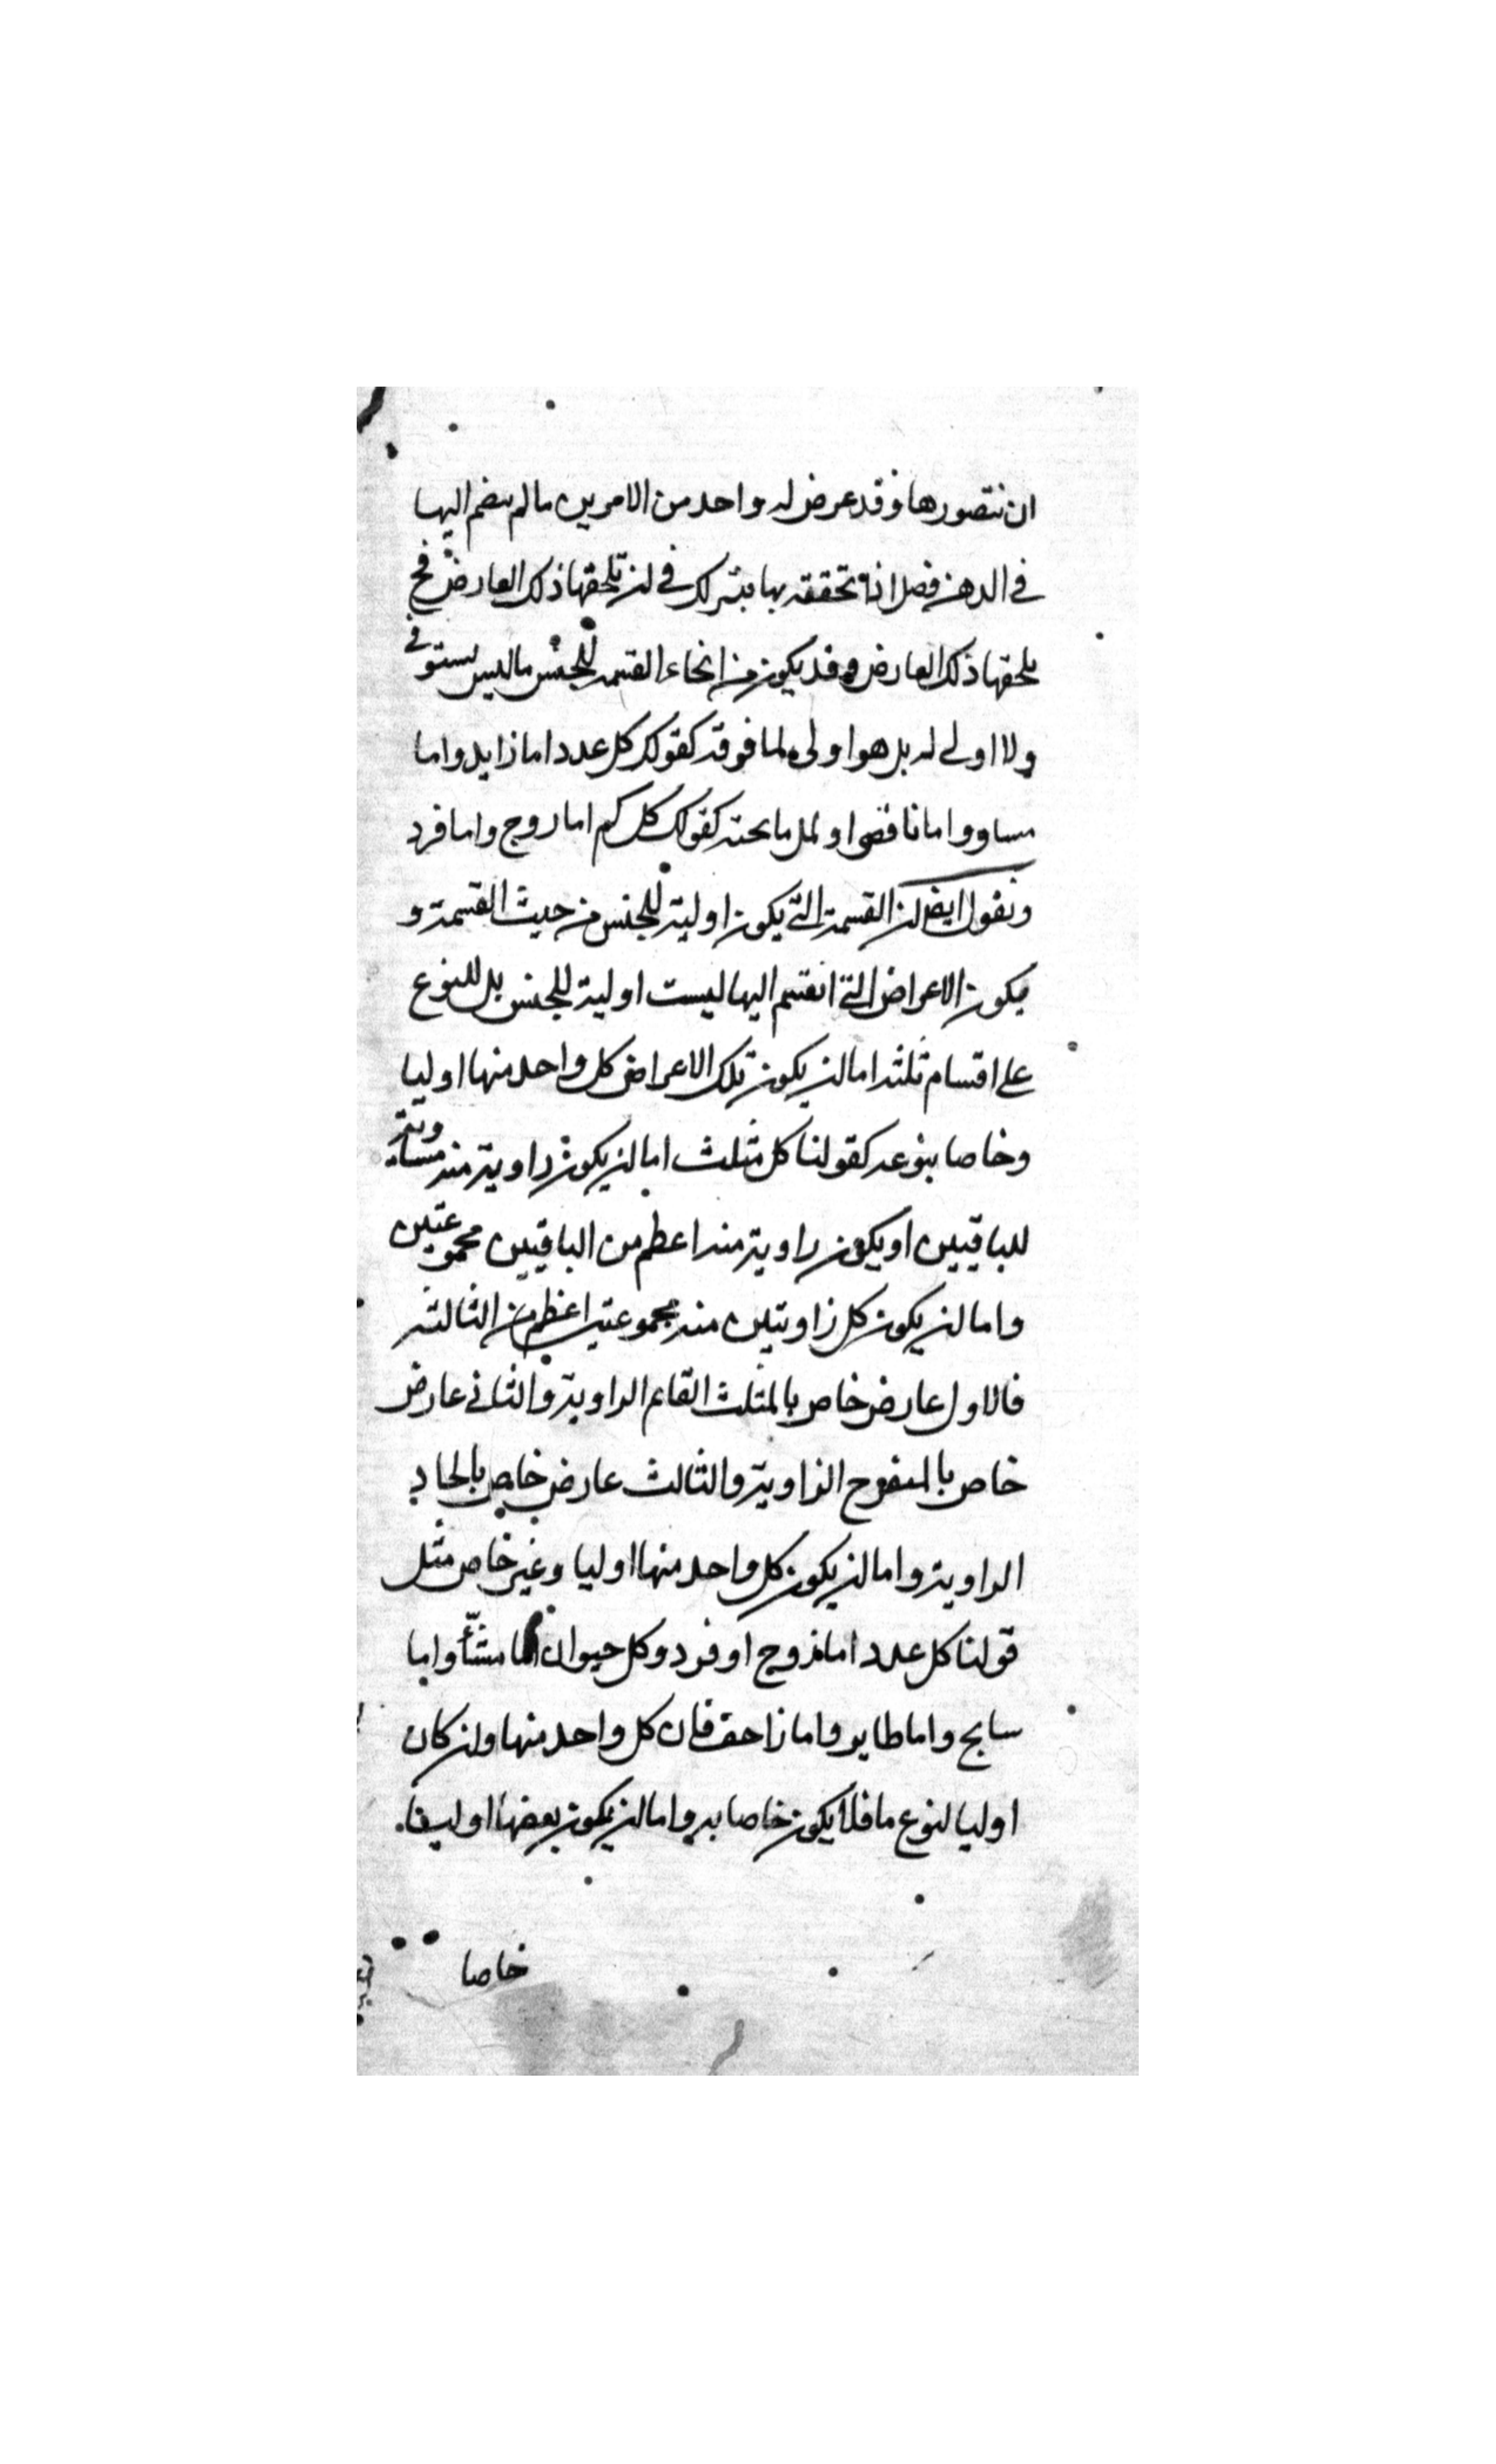 ان نتصورها وقد عرض له واحد من الامرين ما لم ينضم اليها
في الذهن فصل اذا تحققه بها فيترك في ان تلحقها ذلك العارض فح
يلحقها ذلك العارض وقد يكون من انحاء القسمه للجنس ما ليس يستوفي
ولا اولى له بل هو اولى لما فوقه كقولك كل عدد اما زايد واما
مساو واما ناقص او لمل ما تحته كقولك كل كم اما زوج واما فرد
ونقول ايضا ان القسمة التي يكون اولية للجنس من حيث القسمة و
يكون الاعراض التي انقسم اليها ليست اولية للجنس بل للنوع
على اقسام ثلثه اما ان يكون تلك الاعراض كل واحد منها اوليا
وخاصا بنوعه كقولنا كل مثلث اما ان يكون زاوية منه مساوية
للباقيين او يكون زاوية منه اعظم من الباقيين مجموعتين
واما ان يكون كل زاويتين منه مجموعتين اعظم من الثالثه
فالاول عارض خاص بالمثلث القايم الزاوية والثاني عارض
خاص بالمنفرج الزاوية والثالث عارض خاص بالحاد
الزاوية واما ان يكون كل واحد منها اوليا وغير خاص مثل
قولنا كل عدد اما زوج او فرد وكل حيوان اما مشاء واما
سابح واما طاير واما زاحف فان كل واحد منها وان كان
اوليا لنوع ما فلا يكون خاصا به واما ان يكون بعضها اوليا
خاصا